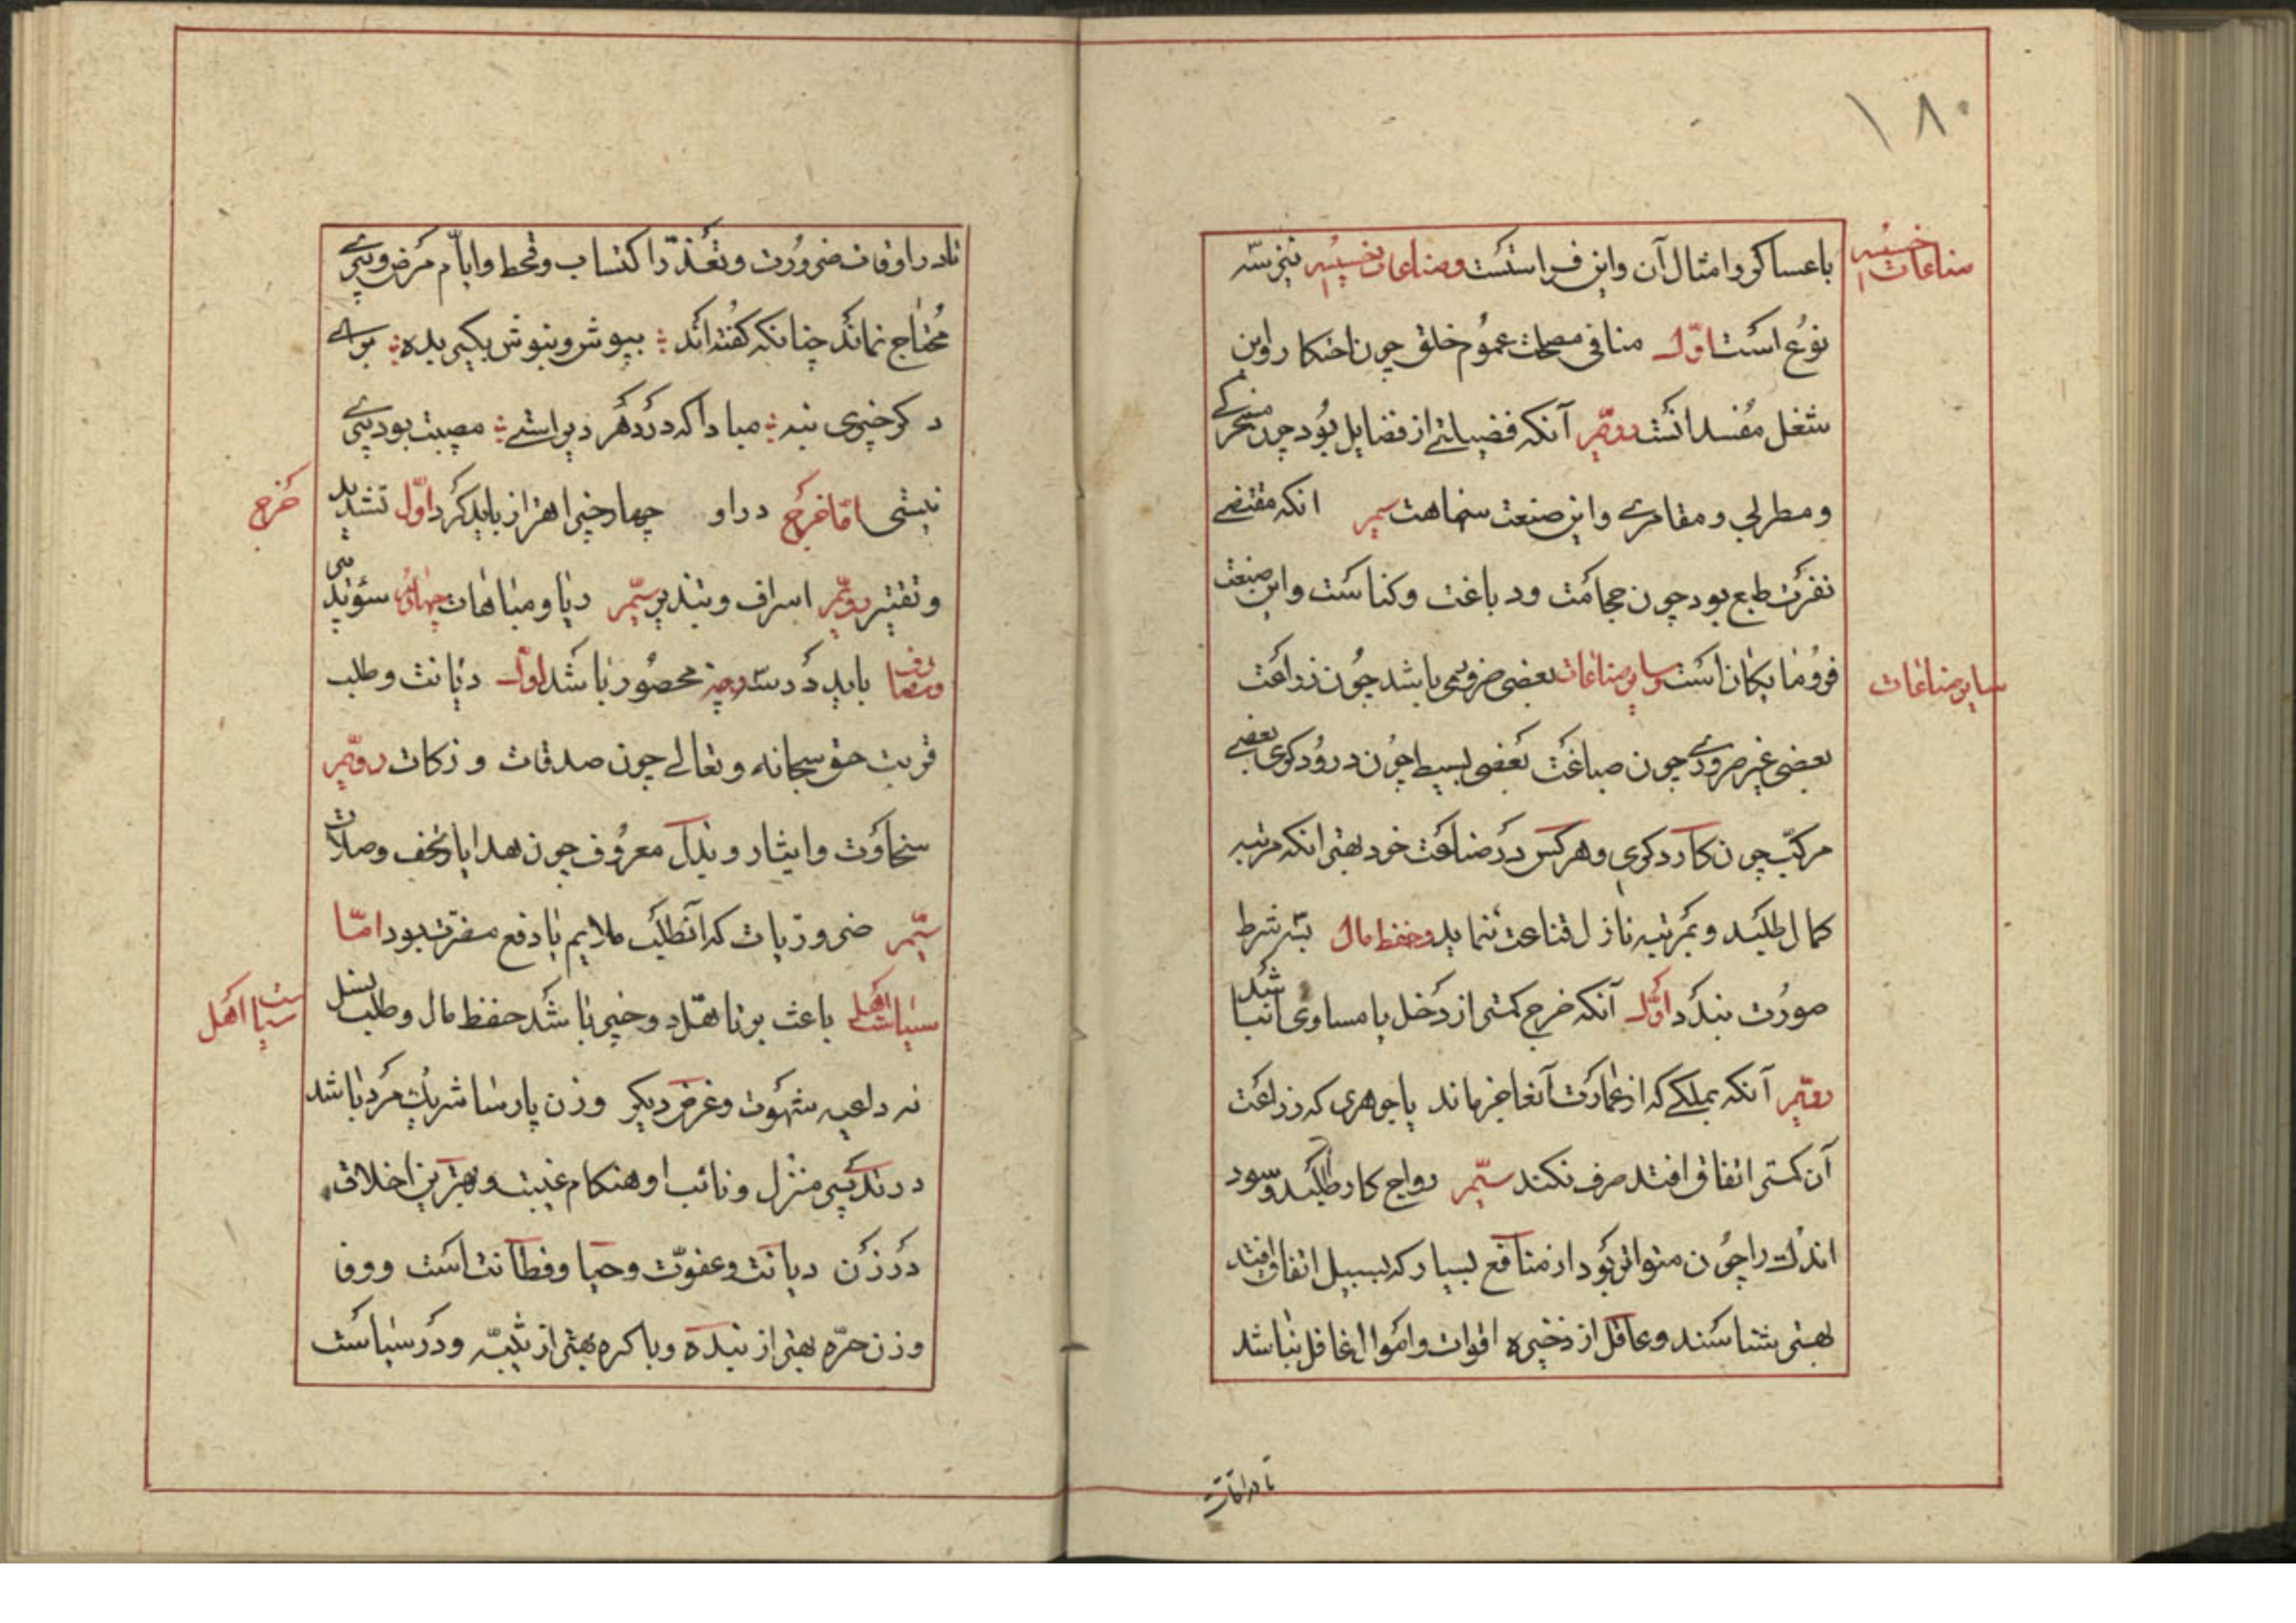 ۱۸۰
صناعات خسیسه
باعساکر و امثال آن و این فراستست و صناعات خسیسه نیز سه
نوع است اوّل منافی مصلحت عموم خلق چون احتکار و این
شغل مفسدانست دویّم آنکه فضیلتی از فضایل بود چون مسخرگی
و مطربی و مقامری و این صنعت سفاهت سیم انکه مقتضی
نفرت طبع بود چون حجامت و دباغت و کناست و این صنعت
فرومایکان است و سایر صناعات بعضی ضروری باشد چون زراعت
سایر صناعات
بعضی غیر ضروری چون صباغت بعضی بسیط چون درودکری بعضی
مرکّب چون کاردکری و هرکس در صناعت خود بهتر انکه مرتبه
کمال طلبد و بمرتبه نازل قناعت ننماید و حفظ مال بسه شرط
صورت بندد اوّل آنکه خرج کمتر از دخل یا مساوی انباشد
دویّم آنکه بملکی که از عمارت آنعاجز ماند یا جوهری که زراعت
آن کمتر اتفاق افتد صرف نکند سیّم رواج کار طلبد و سود
اندک را چون متواتر بود از منافع بسیار که بسبیل اتفاق افتد
بهتر شناسند و عاقل از ذخیره اقوات و اموال غافل نباشد
تا در اوقات
تا در اوقات ضرورت و تعذّر اکتساب و قحط و ایاّم مرض و پیری
محتاج نماند چنانکه کفته‌اند ؞ بپوش و بنوش بکیر بده ؞ برای
دکر چیزی بنه ؞ مبادا که در دهر دیر ایستی ؞ مصیبت بود پیری
نیستی امّا خرج در او چهار چیز اهتراز باید کرد اوّل تشدید
خرج
و تقتیر دویّم اسراف و تبذیر سیّم ریا و مباهات چهارم سوٴ تدبیر
و مصارف باید در سه وجه محصور باشد اوّل دیانت و طلب
قربت حق سبحانه و تعالی چون صدقات و زکات دویّم
سخاوت و ایثار و بذل معروف چون هدایا و تحف و صلات
سیّم ضروریات که انطلب ملایم یا دفع مضرّت بود امّا
سیاست اهل باعث بر تاهل دو چیز باشد حفظ مال و طلب نسل
سیاست اهل
نه داعیه شهوت و غرض دیکر و زن پارسا شریک مرد باشد
در تدبیر منزل و نائب او هنکام غیبت و بهترین اخلاق
در زن دیانت و عفوّت و حیا و فطانت است و وفا
و زن حرّه بهتر از بنده و باکره بهتر از ثیبّه و در سیاست